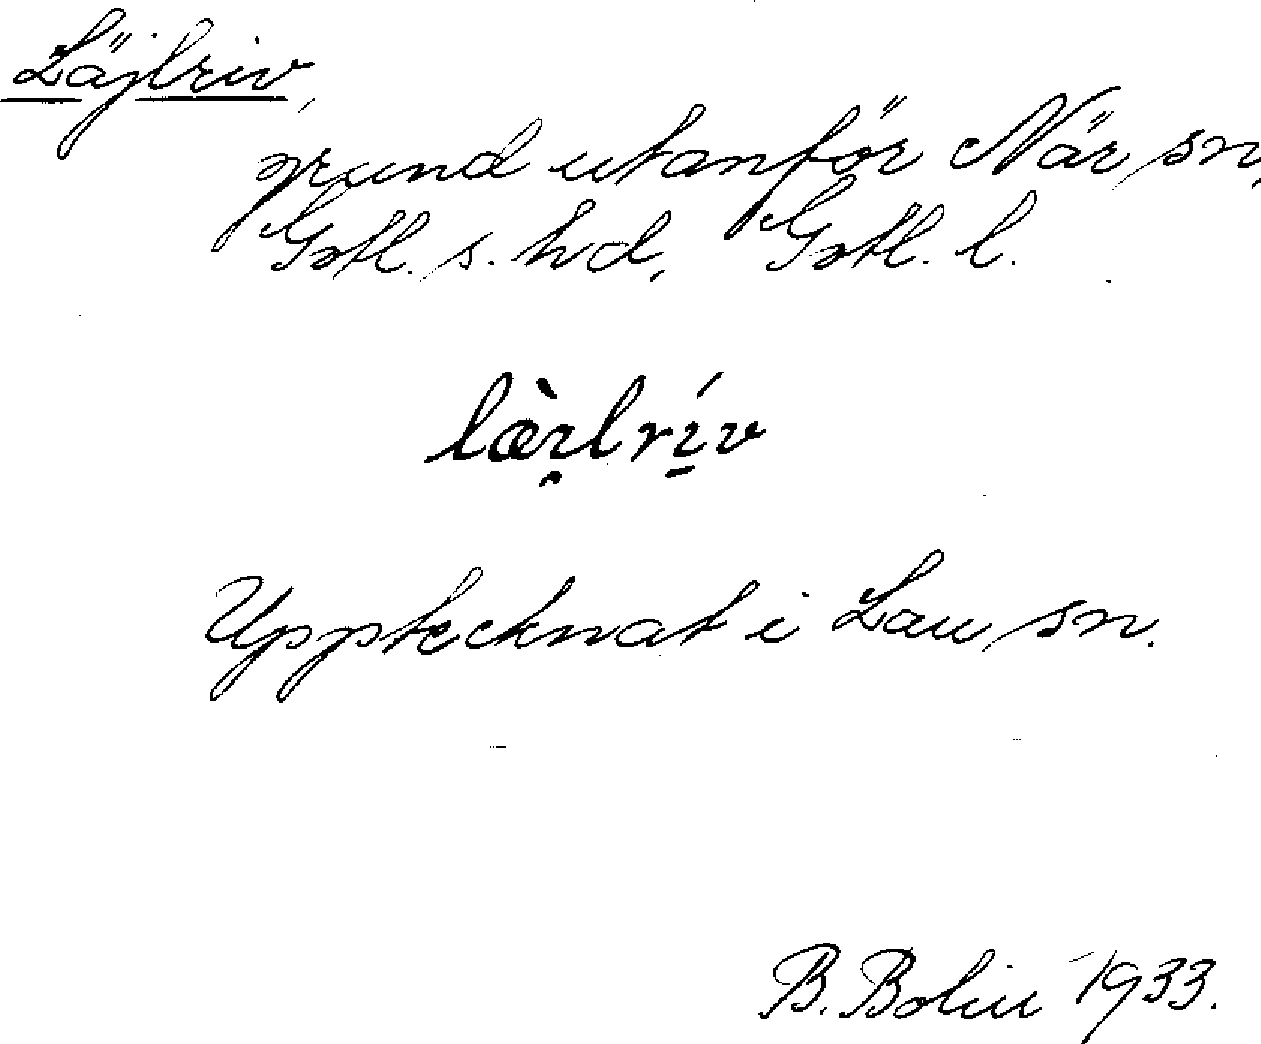 Läjlriv,
grund utanför När sn,
Gotl. s. hd, Gotl. l.
læ̀i̯lrí̱v
Upptecknat i Lau sn.
B. Bolin 1933.